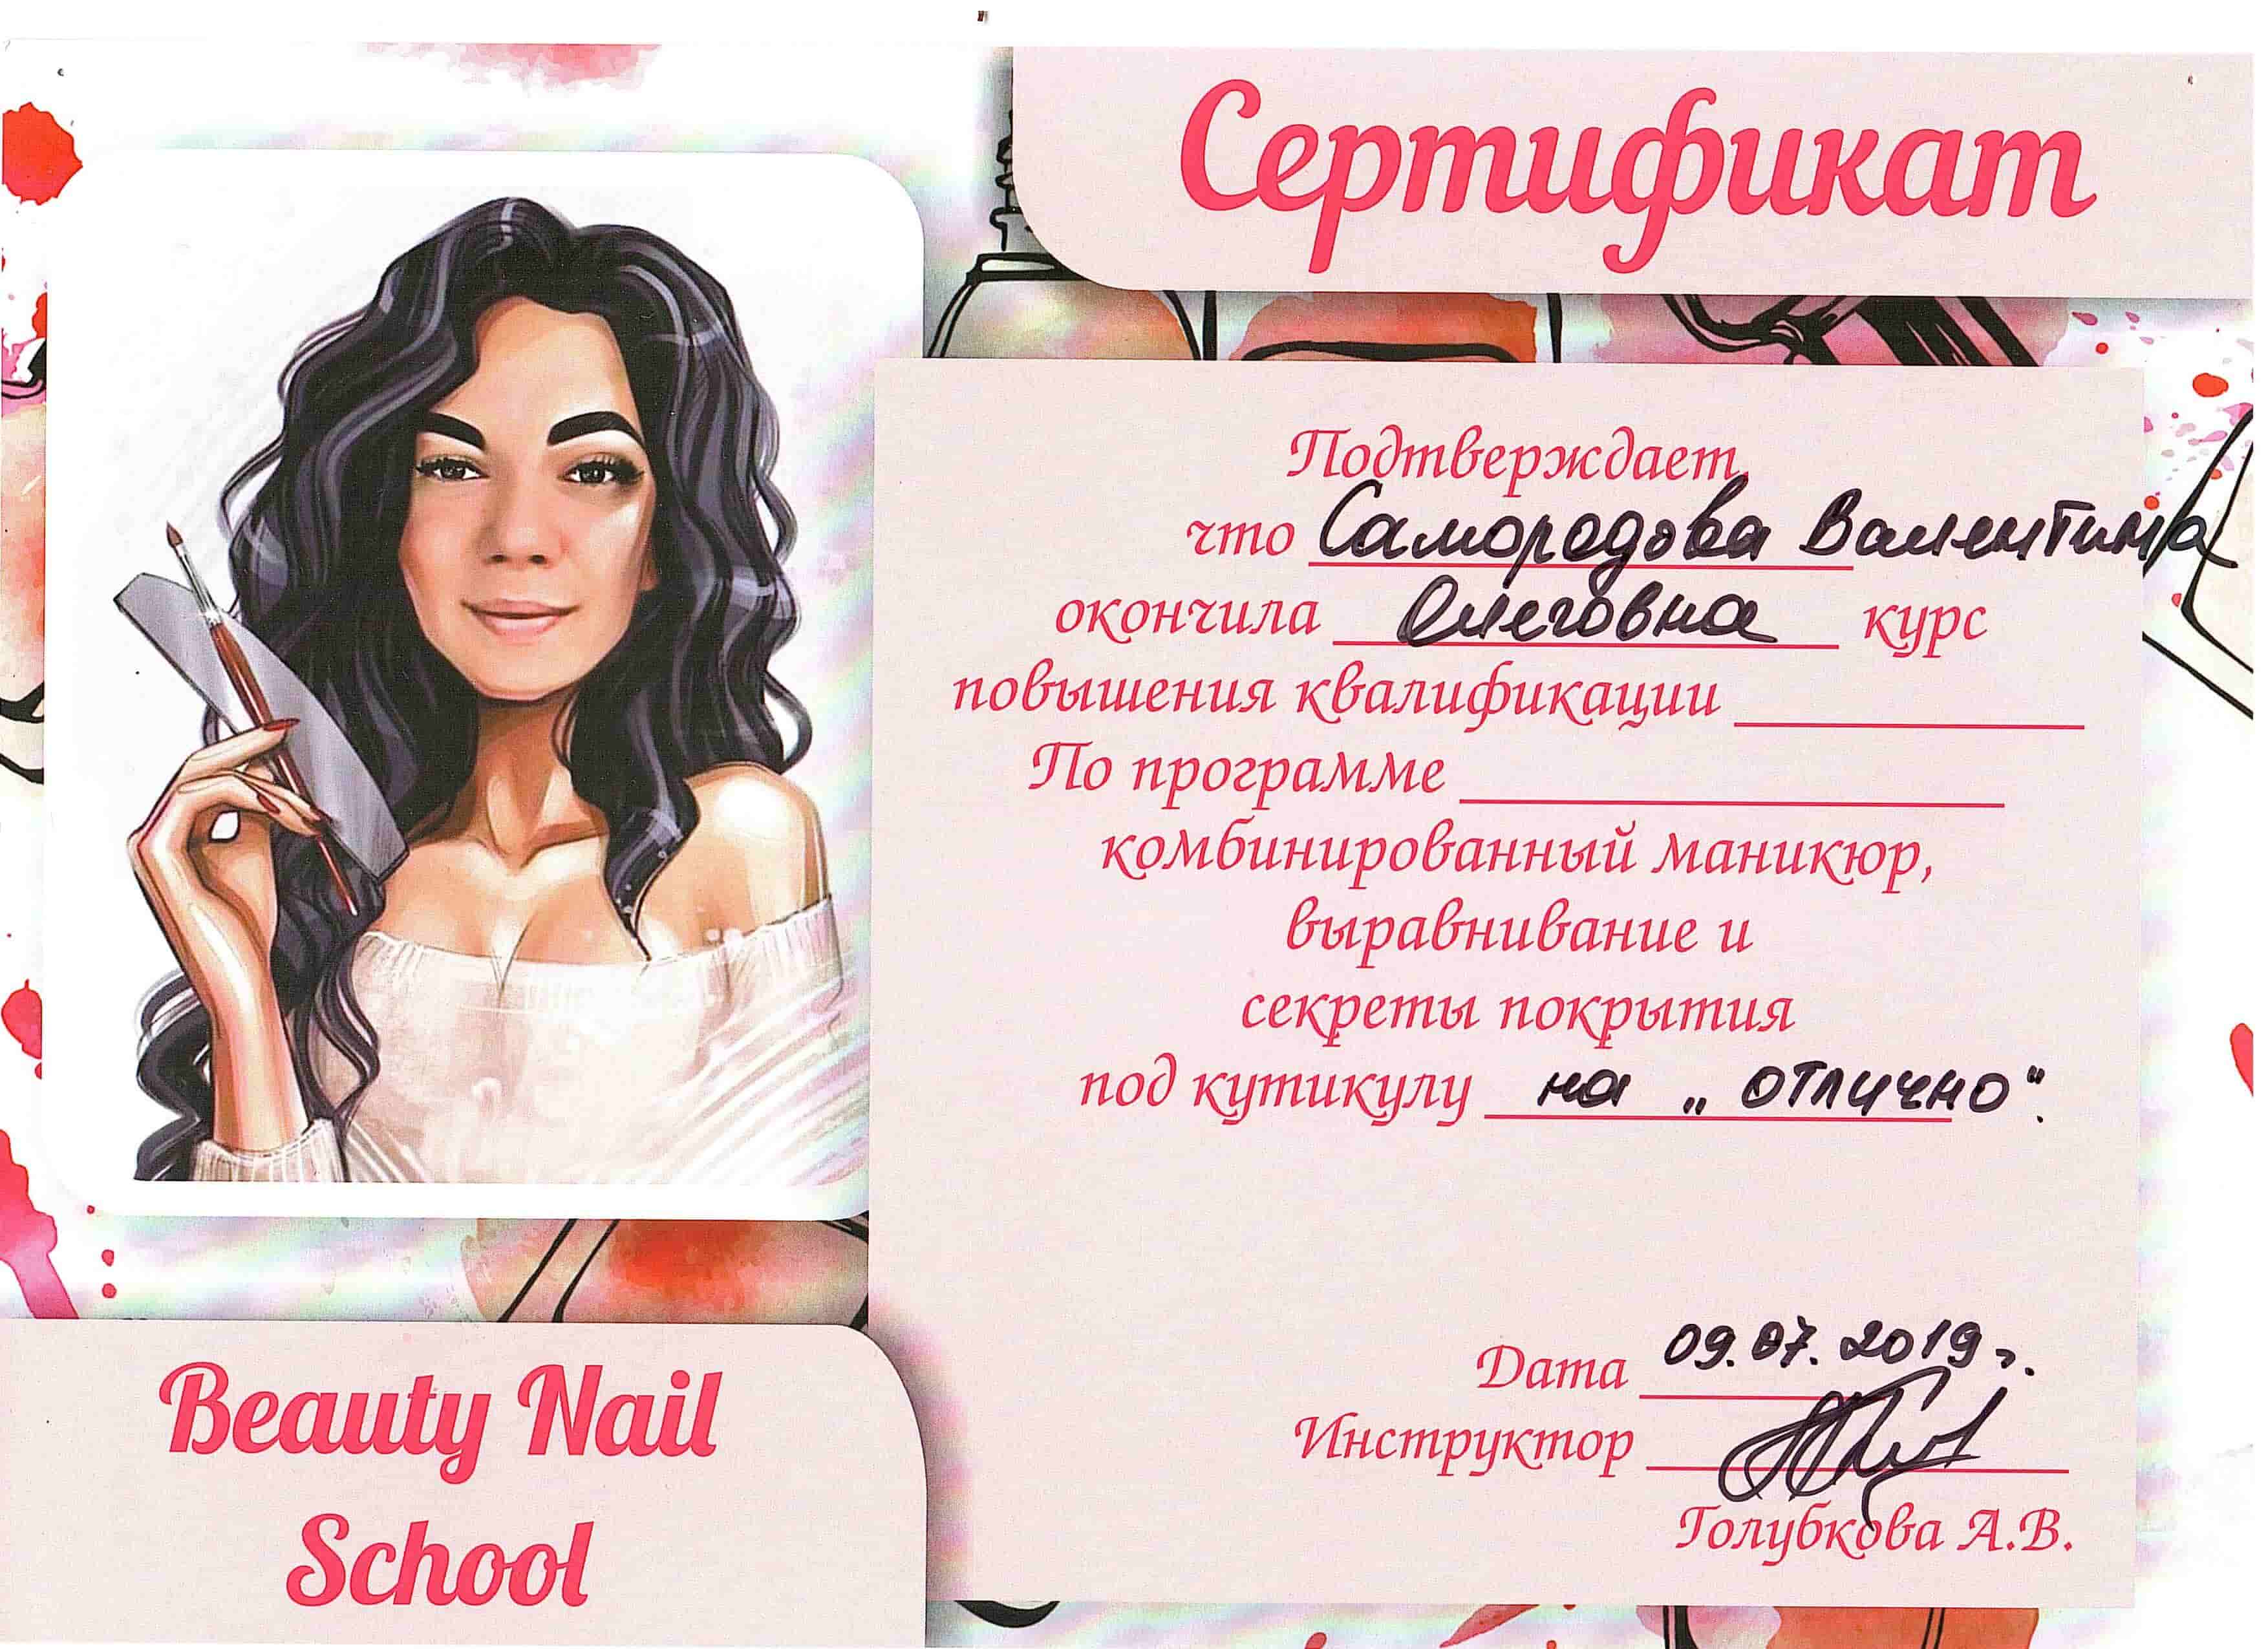 Сертификат
Подтверждает,
что Самородова Валентина
окончила Олеговна курс
повышения квалификации
По программе
комбинированный маникюр,
выравнивание и
секреты покрытия
под кутикулу на „отлично“.
Дата 09.07.2019 г.
Инструктор
Голубкова А.В.
Beauty Nail
School